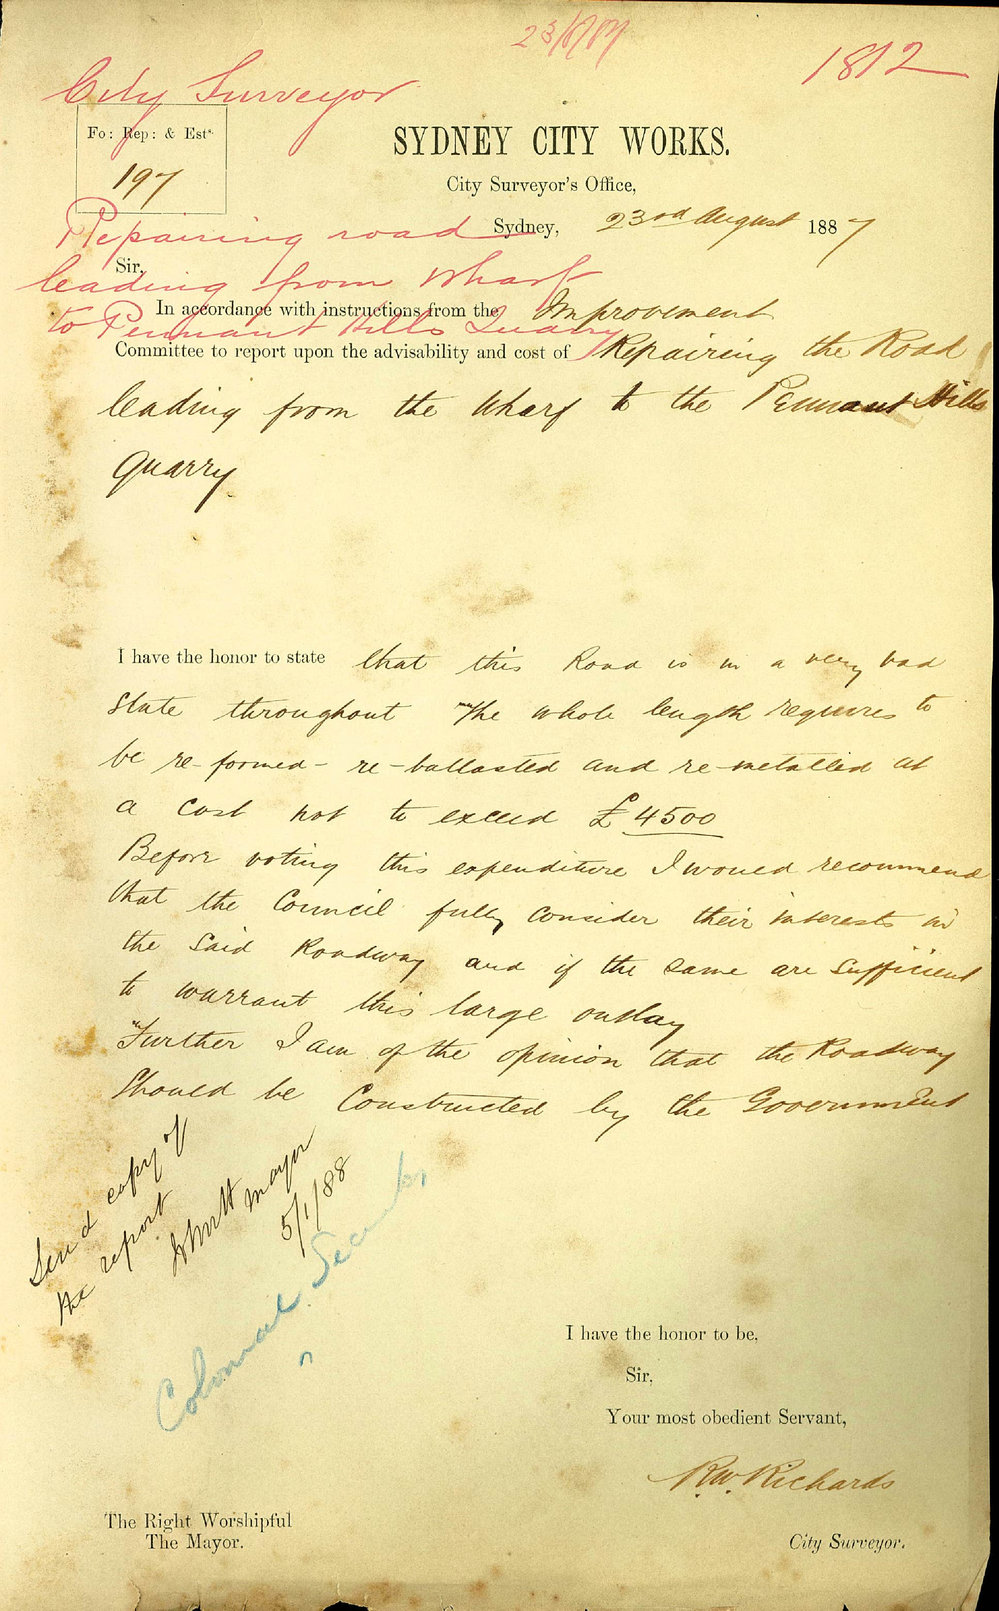 23/8/87
1812
City Surveyor
Fo: Rep: & Ests.
197
SYDNEY CITY WORKS.
City Surveyor's Office,
Sydney, 23rd August 1887
Repairing road
leading from Wharf
to Pennant Hills Quarry
Sir,
In accordance with instructions from the Improvement
Committee to report upon the advisability and cost of Repairing the Road
leading from the Wharf to the Pennant Hills
Quarry.
I have the honor to state that this Road is in a very bad
State throughout The whole length requires to
be re-formed - re-ballasted and re-metalled at
a cost not to exceed £4500
Before voting this expenditure I would recommend
that the Council fully consider their interests in
the said Roadway and if the same are sufficient
to warrant this large outlay
Further I am of the opinion that the Roadway
Should be Constructed by the Government
Send copy of
the report
Mayor
5/1/88
Colonial
I have the honor to be,
Sir,
Your most obedient Servant,
R.W. Richards
The Right Worshipful
The Mayor.
City Surveyor.